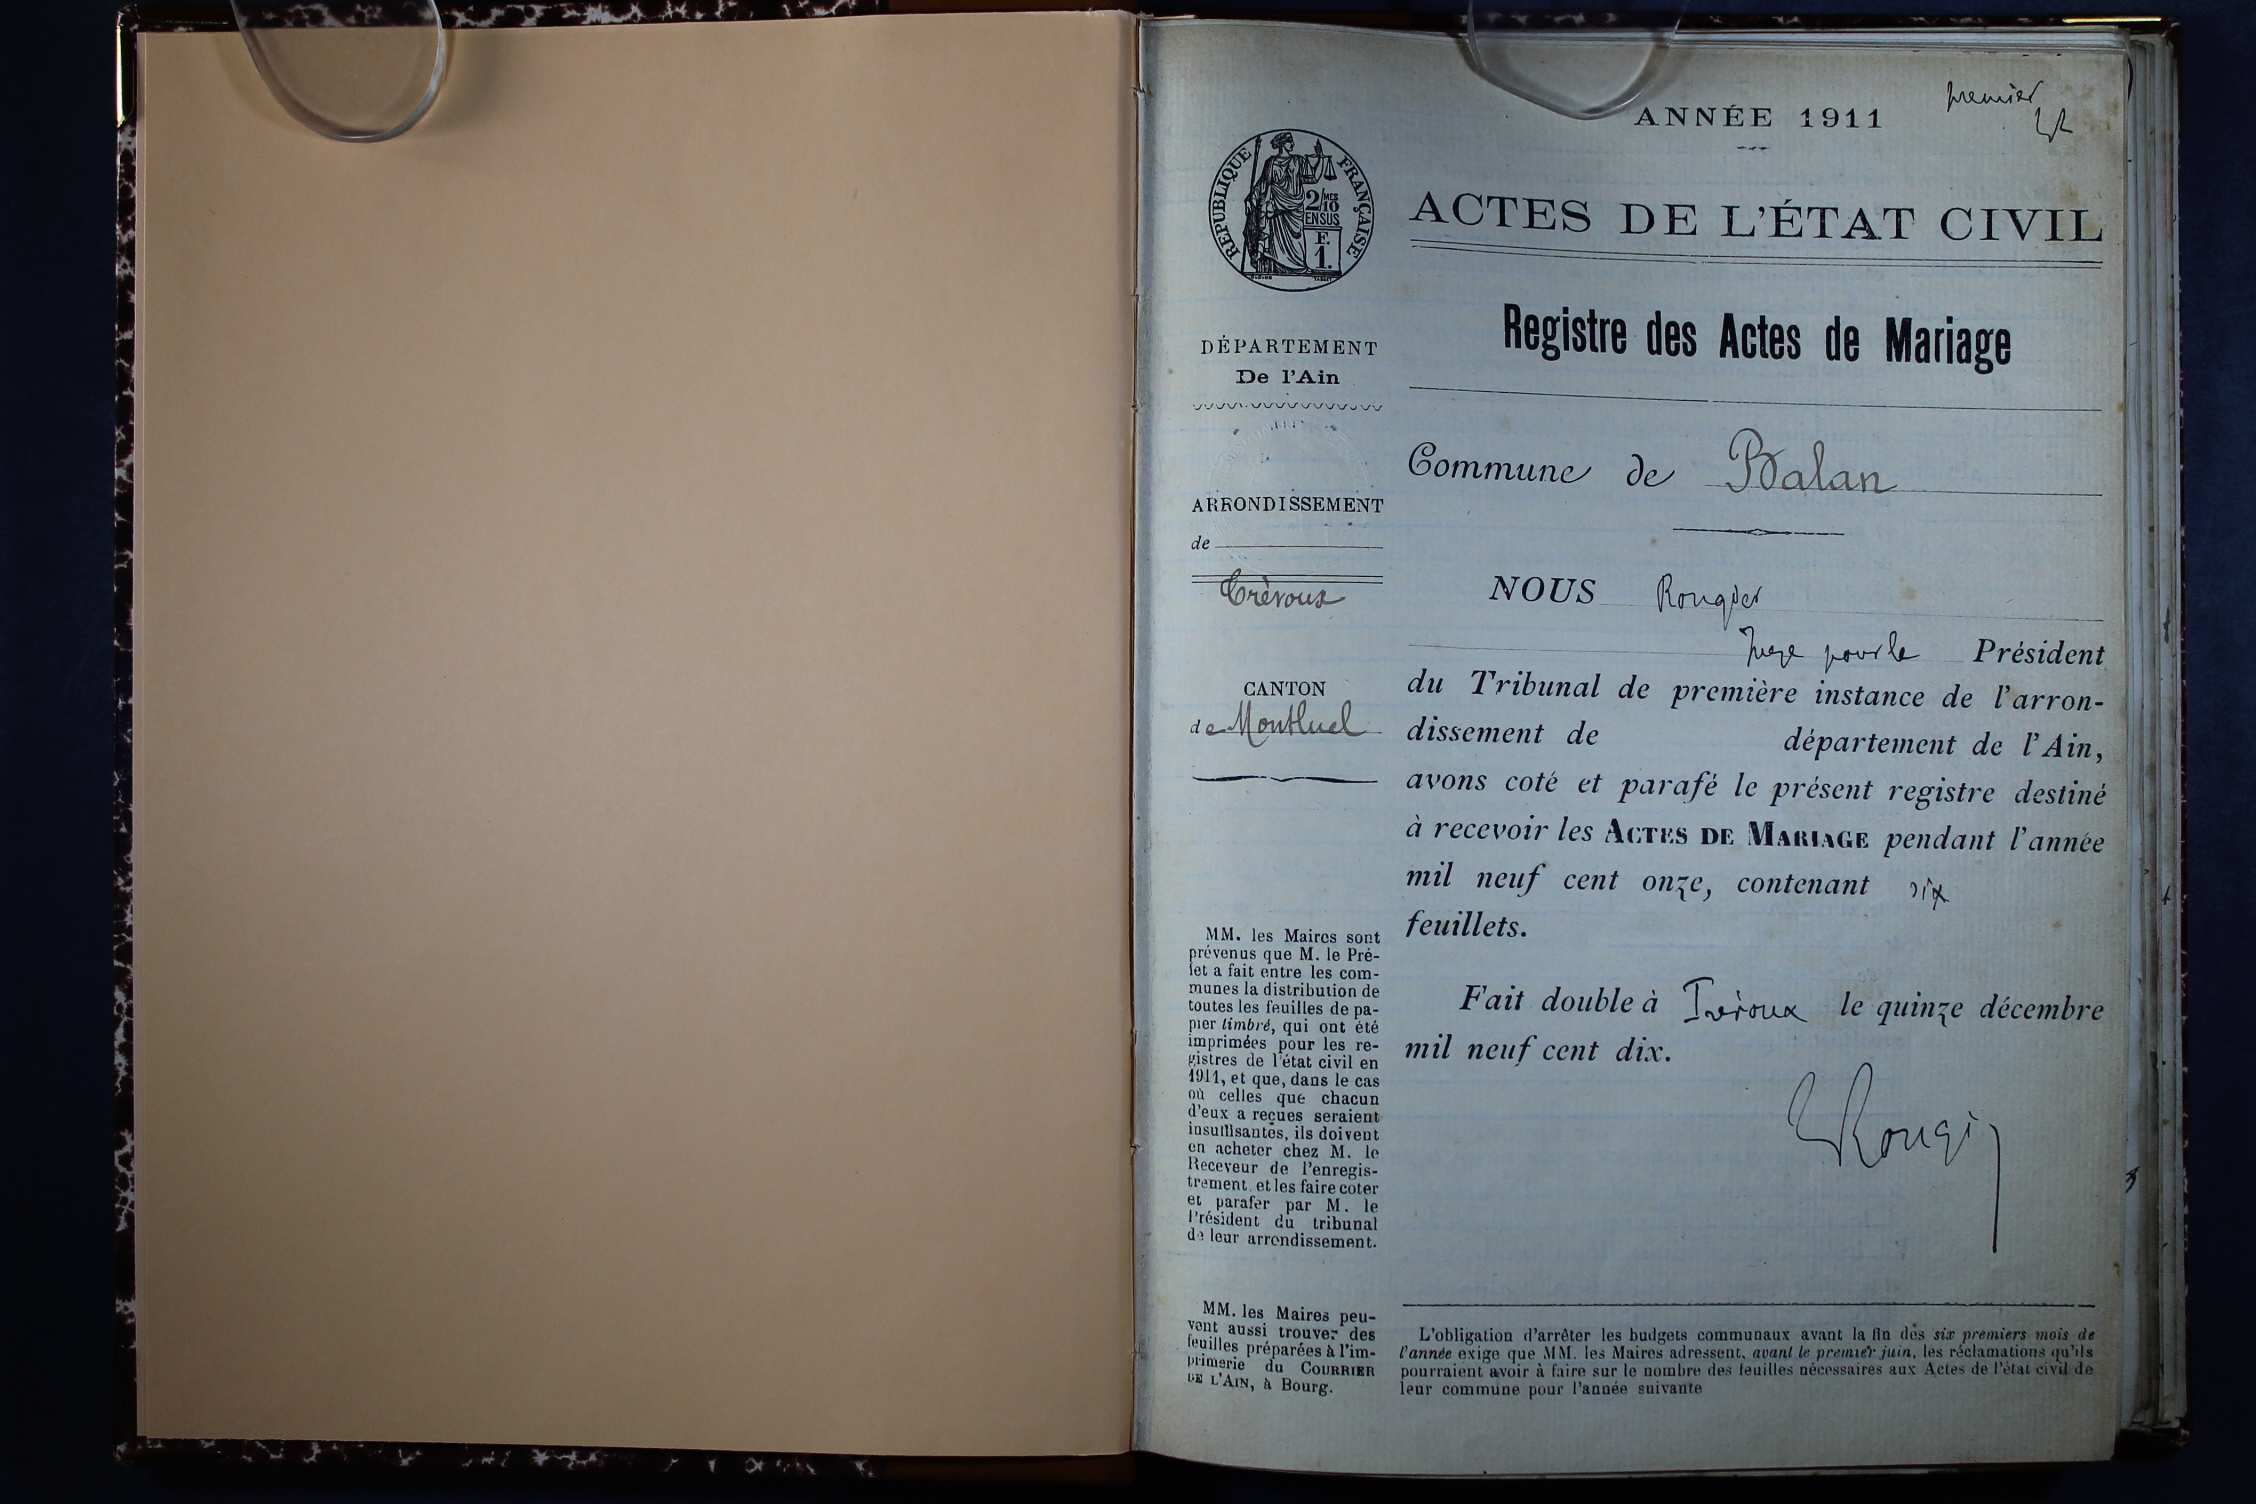 premier
ANNÉE 1911
RÉPUBLIQUE FRANÇAISE
2/MES
10
EN SUS
F.
1.
ACTES DE L'ÉTAT CIVIL
Registre des Actes de Mariage
DÉPARTEMENT
De l'Ain
ARRONDISSEMENT
de
Trévoux
CANTON
de Montluel
MM. les Maires sont
prévenus que M. le Pré-
fet a fait entre les com-
munes la distribution de
toutes les feuilles de pa-
pier timbré, qui ont été
imprimées pour les re-
gistres de l'état civil en
1911, et que, dans le cas
où celles que chacun
d'eux a reçues seraient
insuffisantes, ils doivent
en acheter chez M. le
Receveur de l'enregis-
trement et les faire coter
et parafer par M. le
Président du tribunal
de leur arrondissement.
MM. les Maires peu-
vent aussi trouver des
feuilles préparées à l'im-
primerie du COURRIER
DE L'AIN, à Bourg.
Commune de Balan
NOUS Rougier
Juge pour le Président
du Tribunal de première instance de l'arron-
dissement de département de l'Ain,
avons coté et parafé le présent registre destiné
à recevoir les ACTES DE MARIAGE pendant l'année
mil neuf cent onze, contenant six
feuillets.
Fait double à Trévoux le quinze décembre
mil neuf cent dix.
Rougi
L'obligation d'arrêter les budgets communaux avant la fin des six premiers mois de
l'année exige que MM. les Maires adressent, avant le premier juin, les réclamations qu'ils
pourraient avoir à faire sur le nombre des feuilles nécessaires aux Actes de l'état civil de
leur commune pour l'année suivante